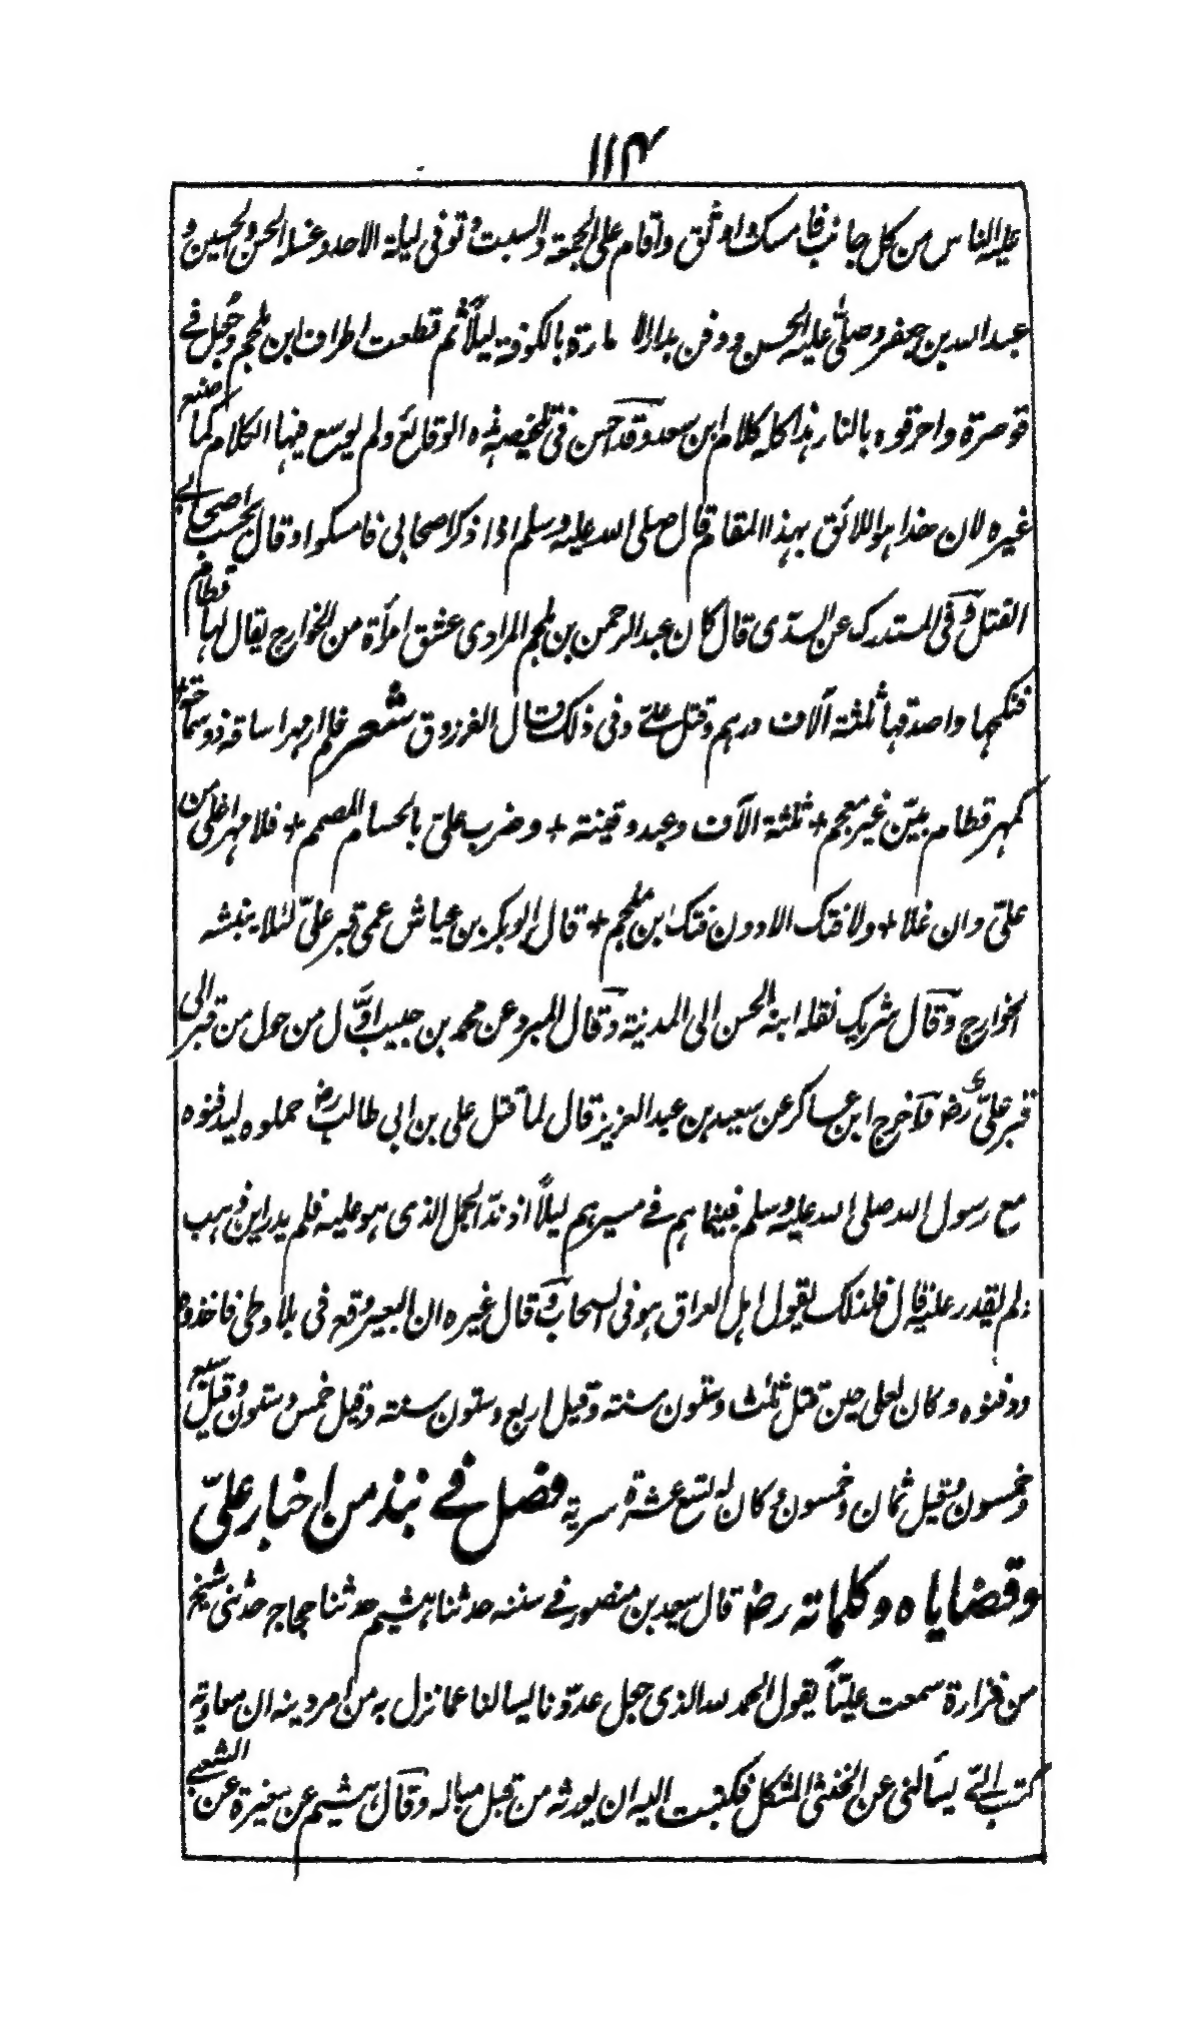 ۱۱۴
عليه الناس من كل جانب فامسك واوثق واقام على الجمعة والسبت وتوفى ليلة الاحد وغسله الحسن والحسين و
عبد الله بن جعفر وصلّى عليه الحسن ودفن بدار الامارة بالكوفة ليلاً ثم قطعت اطراف ابن ملجم وجُعل فے
قوصرة واحرقوه بالنار هذا كله كلام ابن سعد وقد احسن فى تلخيصه هذه الوقائع ولم يوسع فيها الكلام كما صنع
غيره لان هذا هو اللائق بهذا المقام قال صلى الله عليه وسلم اذا ذكر اصحابى فامسكوا وقال بحسب اصحابى
القتل وفى المستدرك عن السدّى قال كان عبد الرحمن بن ملجم المرادى عشق امرأة من الخوارج يقال لها قطام
فنكحها واصدقها ثلثة آلاف درهم وقتل علىّ وفى ذلك قال الفرزدق شعر فلم ار مهرا ساقه ذو سماحة +
كمهر قطام بيّن غير معجم + ثلثة آلاف وعبد وقينة + وضرب علىّ بالحسام المصمم + فلا مهر اغلى من
علىّ وان غلا + ولا فتك الا دون فتك ابن ملجم + قال ابو بكر بن عياش عمى قبر علىّ لئلا ينبشه
الخوارج وقال شريك نقله ابنه الحسن الى المدينة وقال المبرد عن محمد بن حبيب اوّل من حول من قبر الى
قبر علىّ رض واخرج ابن عساكر عن سعيد بن عبد العزيز قال لما قتل على بن ابى طالب رض حملوه ليدفنوه
مع رسول الله صلى الله عليه وسلم فبينما هم فے مسيرهم ليلاً اذ ندّ الجمل الذى هو عليه فلم يدر اين ذهب
ولم يقدر عليه قال فلذلك يقول اهل العراق هو فى السحاب وقال غيره ان البعير وقع فى بلاد طى فاخذوه
ودفنوه وكان لعلى حين قتل ثلث وستون سنة وقيل اربع وستون سنة وقيل خمس وستون وقيل سبع
وخمسون وقيل ثمان وخمسون وكان له تسع عشرة سرية فصل فے نبذ من اخبار علىّ
وقضاياه وكلماته رض قال سعيد بن منصور فے سننه حدثنا هشيم حدثنا حجاج حدثنى شيخ
من فزارة سمعت عليّاً يقول الحمد لله الذى جعل عدوّنا يسالنا عما نزل به من امر دينه ان معاوية
كتب الىّ يسألنى عن الخنثى المشكل فكتبت اليه ان يورثه من قبل مباله وقال هشيم عن مغيرة عن الشعبى